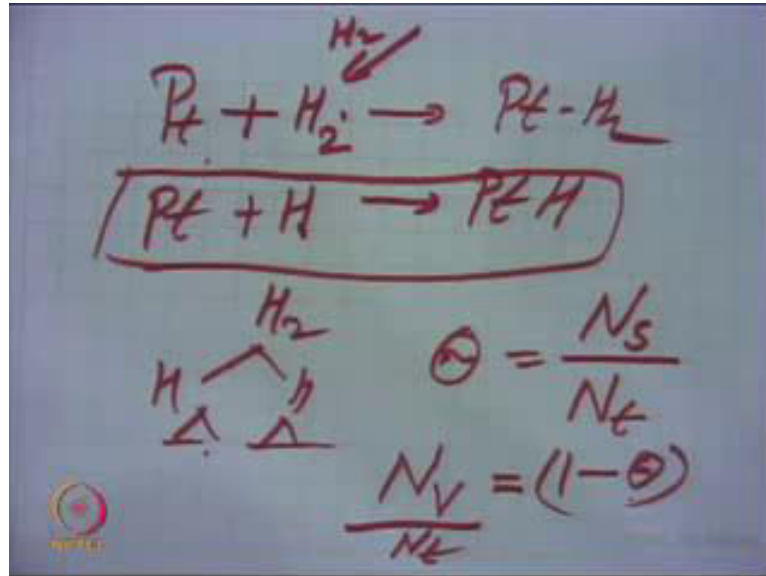 H2
Pt + H2 → Pt-H2
Pt + H → Pt H
H2
H H
Θ = Ns / Nt
Nv / Nt = (1-Θ)
NPTEL